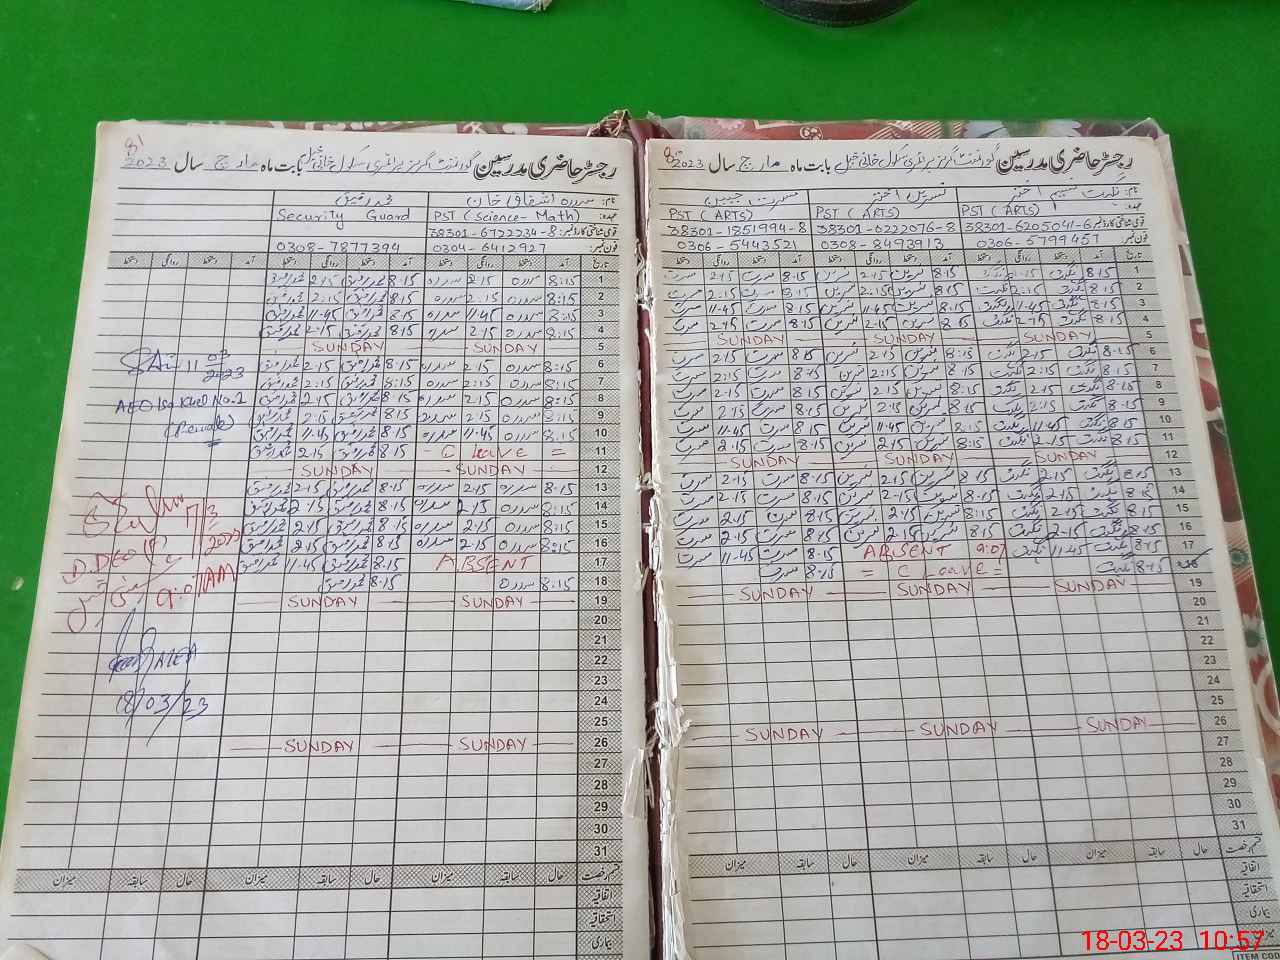 رجسٹر حاضری مدرسین گورنمنٹ گرلز پرائمری سکول خانی خیل بابت ماہ مارچ سال 2023
نام: نگہت نسیم اختر نسرین اختر مسرت جبین
عہدہ: PST (ARTs) PST (ARTs) PST (ARTs)
قومی شناختی کارڈ نمبر: 38301-6205041-6 38301-0222076-8 38301-1851994-8
فون نمبر: 0306-5799457 0308-8493913 0306-5443521
تاریخ آمد دستخط روانگی دستخط آمد دستخط روانگی دستخط آمد دستخط روانگی دستخط
1 8:15 نگہت 2:15 نگہت 8:15 نسرین 2:15 نسرین 8:15 مسرت 2:15 مسرت
2 8:15 نگہت 2:15 نگہت 8:15 نسرین 2:15 نسرین 8:15 مسرت 2:15 مسرت
3 8:15 نگہت 11:45 نگہت 8:15 نسرین 11:45 نسرین 8:15 مسرت 11:45 مسرت
4 8:15 نگہت 2:15 نگہت 8:15 نسرین 2:15 نسرین 8:15 مسرت 2:15 مسرت
5 SUNDAY SUNDAY SUNDAY
6 8:15 نگہت 2:15 نگہت 8:15 نسرین 2:15 نسرین 8:15 مسرت 2:15 مسرت
7 8:15 نگہت 2:15 نگہت 8:15 نسرین 2:15 نسرین 8:15 مسرت 2:15 مسرت
8 8:15 نگہت 2:15 نگہت 8:15 نسرین 2:15 نسرین 8:15 مسرت 2:15 مسرت
9 8:15 نگہت 2:15 نگہت 8:15 نسرین 2:15 نسرین 8:15 مسرت 2:15 مسرت
10 8:15 نگہت 11:45 نگہت 8:15 نسرین 11:45 نسرین 8:15 مسرت 11:45 مسرت
11 8:15 نگہت 2:15 نگہت 8:15 نسرین 2:15 نسرین 8:15 مسرت 2:15 مسرت
12 SUNDAY SUNDAY SUNDAY
13 8:15 نگہت 2:15 نگہت 8:15 نسرین 2:15 نسرین 8:15 مسرت 2:15 مسرت
14 8:15 نگہت 2:15 نگہت 8:15 نسرین 2:15 نسرین 8:15 مسرت 2:15 مسرت
15 8:15 نگہت 2:15 نگہت 8:15 نسرین 2:15 نسرین 8:15 مسرت 2:15 مسرت
16 8:15 نگہت 2:15 نگہت 8:15 نسرین 2:15 نسرین 8:15 مسرت 2:15 مسرت
17 8:15 نگہت 11:45 نگہت ABSENT 9:07 8:15 مسرت 11:45 مسرت
18 8:15 نگہت = C Leave = 8:15 مسرت
19 SUNDAY SUNDAY SUNDAY
20
21
22
23
24
25
26 SUNDAY SUNDAY SUNDAY
27
28
29
30
31
قسم رخصت حال سابقہ میزان حال سابقہ میزان حال سابقہ میزان
اتفاقیہ
استحقاقیہ
بیماری
ITEM COD
رجسٹر حاضری مدرسین گورنمنٹ گرلز پرائمری سکول خانی خیل بابت ماہ مارچ سال 2023
نام: سدرہ اشفاق خان محمد رفیق
عہدہ: PST (Science-Math) Security Guard
قومی شناختی کارڈ نمبر: 38301-6722234-8
فون نمبر: 0304-6412927 0308-7877394
تاریخ آمد دستخط روانگی دستخط آمد دستخط روانگی دستخط آمد دستخط روانگی دستخط
1 8:15 سدرہ 2:15 سدرہ 8:15 محمد رفیق 2:15 محمد رفیق
2 8:15 سدرہ 2:15 سدرہ 8:15 محمد رفیق 2:15 محمد رفیق
3 8:15 سدرہ 11:45 سدرہ 8:15 محمد رفیق 11:45 محمد رفیق
4 8:15 سدرہ 2:15 سدرہ 8:15 محمد رفیق 2:15 محمد رفیق
5 SUNDAY SUNDAY
6 8:15 سدرہ 2:15 سدرہ 8:15 محمد رفیق 2:15 محمد رفیق
7 8:15 سدرہ 2:15 سدرہ 8:15 محمد رفیق 2:15 محمد رفیق
8 8:15 سدرہ 2:15 سدرہ 8:15 محمد رفیق 2:15 محمد رفیق
9 8:15 سدرہ 2:15 سدرہ 8:15 محمد رفیق 2:15 محمد رفیق
10 8:15 سدرہ 11:45 سدرہ 8:15 محمد رفیق 11:45 محمد رفیق
11 - C leave = 8:15 محمد رفیق 2:15 محمد رفیق
12 SUNDAY SUNDAY
13 8:15 سدرہ 2:15 سدرہ 8:15 محمد رفیق 2:15 محمد رفیق
14 8:15 سدرہ 2:15 سدرہ 8:15 محمد رفیق 2:15 محمد رفیق
15 8:15 سدرہ 2:15 سدرہ 8:15 محمد رفیق 2:15 محمد رفیق
16 8:15 سدرہ 2:15 سدرہ 8:15 محمد رفیق 2:15 محمد رفیق
17 ABSENT 8:15 محمد رفیق 11:45 محمد رفیق
18 8:15 سدرہ 8:15 محمد رفیق
19 SUNDAY SUNDAY
20
21
22
23
24
25
26 SUNDAY SUNDAY
27
28
29
30
31
قسم رخصت حال سابقہ میزان حال سابقہ میزان حال سابقہ میزان
اتفاقیہ
استحقاقیہ
بیماری
11 03 2023
AEO Isa Khel No.1
(Female)
17/3/2023
D.DEO
9:07 AM
18/03/23
18-03-23 10:57